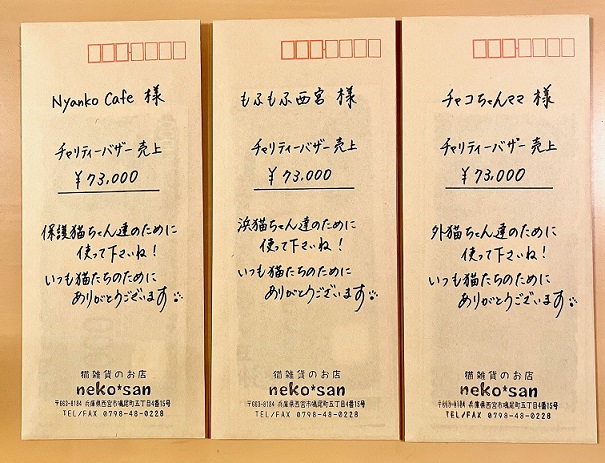 Nyanko Cafe 様
チャリティーバザー売上
¥73,000
保護猫ちゃん達のために
使って下さいね！
いつも猫たちのために
ありがとうございます
猫雑貨のお店
neko*san
〒663-8184 兵庫県西宮市鳴尾町五丁目4番15号
TEL/FAX 0798-48-0228
もふもふ西宮 様
チャリティーバザー売上
¥73,000
浜猫ちゃん達のために
使って下さいね！
いつも猫たちのために
ありがとうございます
猫雑貨のお店
neko*san
〒663-8184 兵庫県西宮市鳴尾町五丁目4番15号
TEL/FAX 0798-48-0228
チャコちゃんママ 様
チャリティーバザー売上
¥73,000
外猫ちゃん達のために
使って下さいね！
いつも猫たちのために
ありがとうございます
猫雑貨のお店
neko*san
〒663-8184 兵庫県西宮市鳴尾町五丁目4番15号
TEL/FAX 0798-48-0228